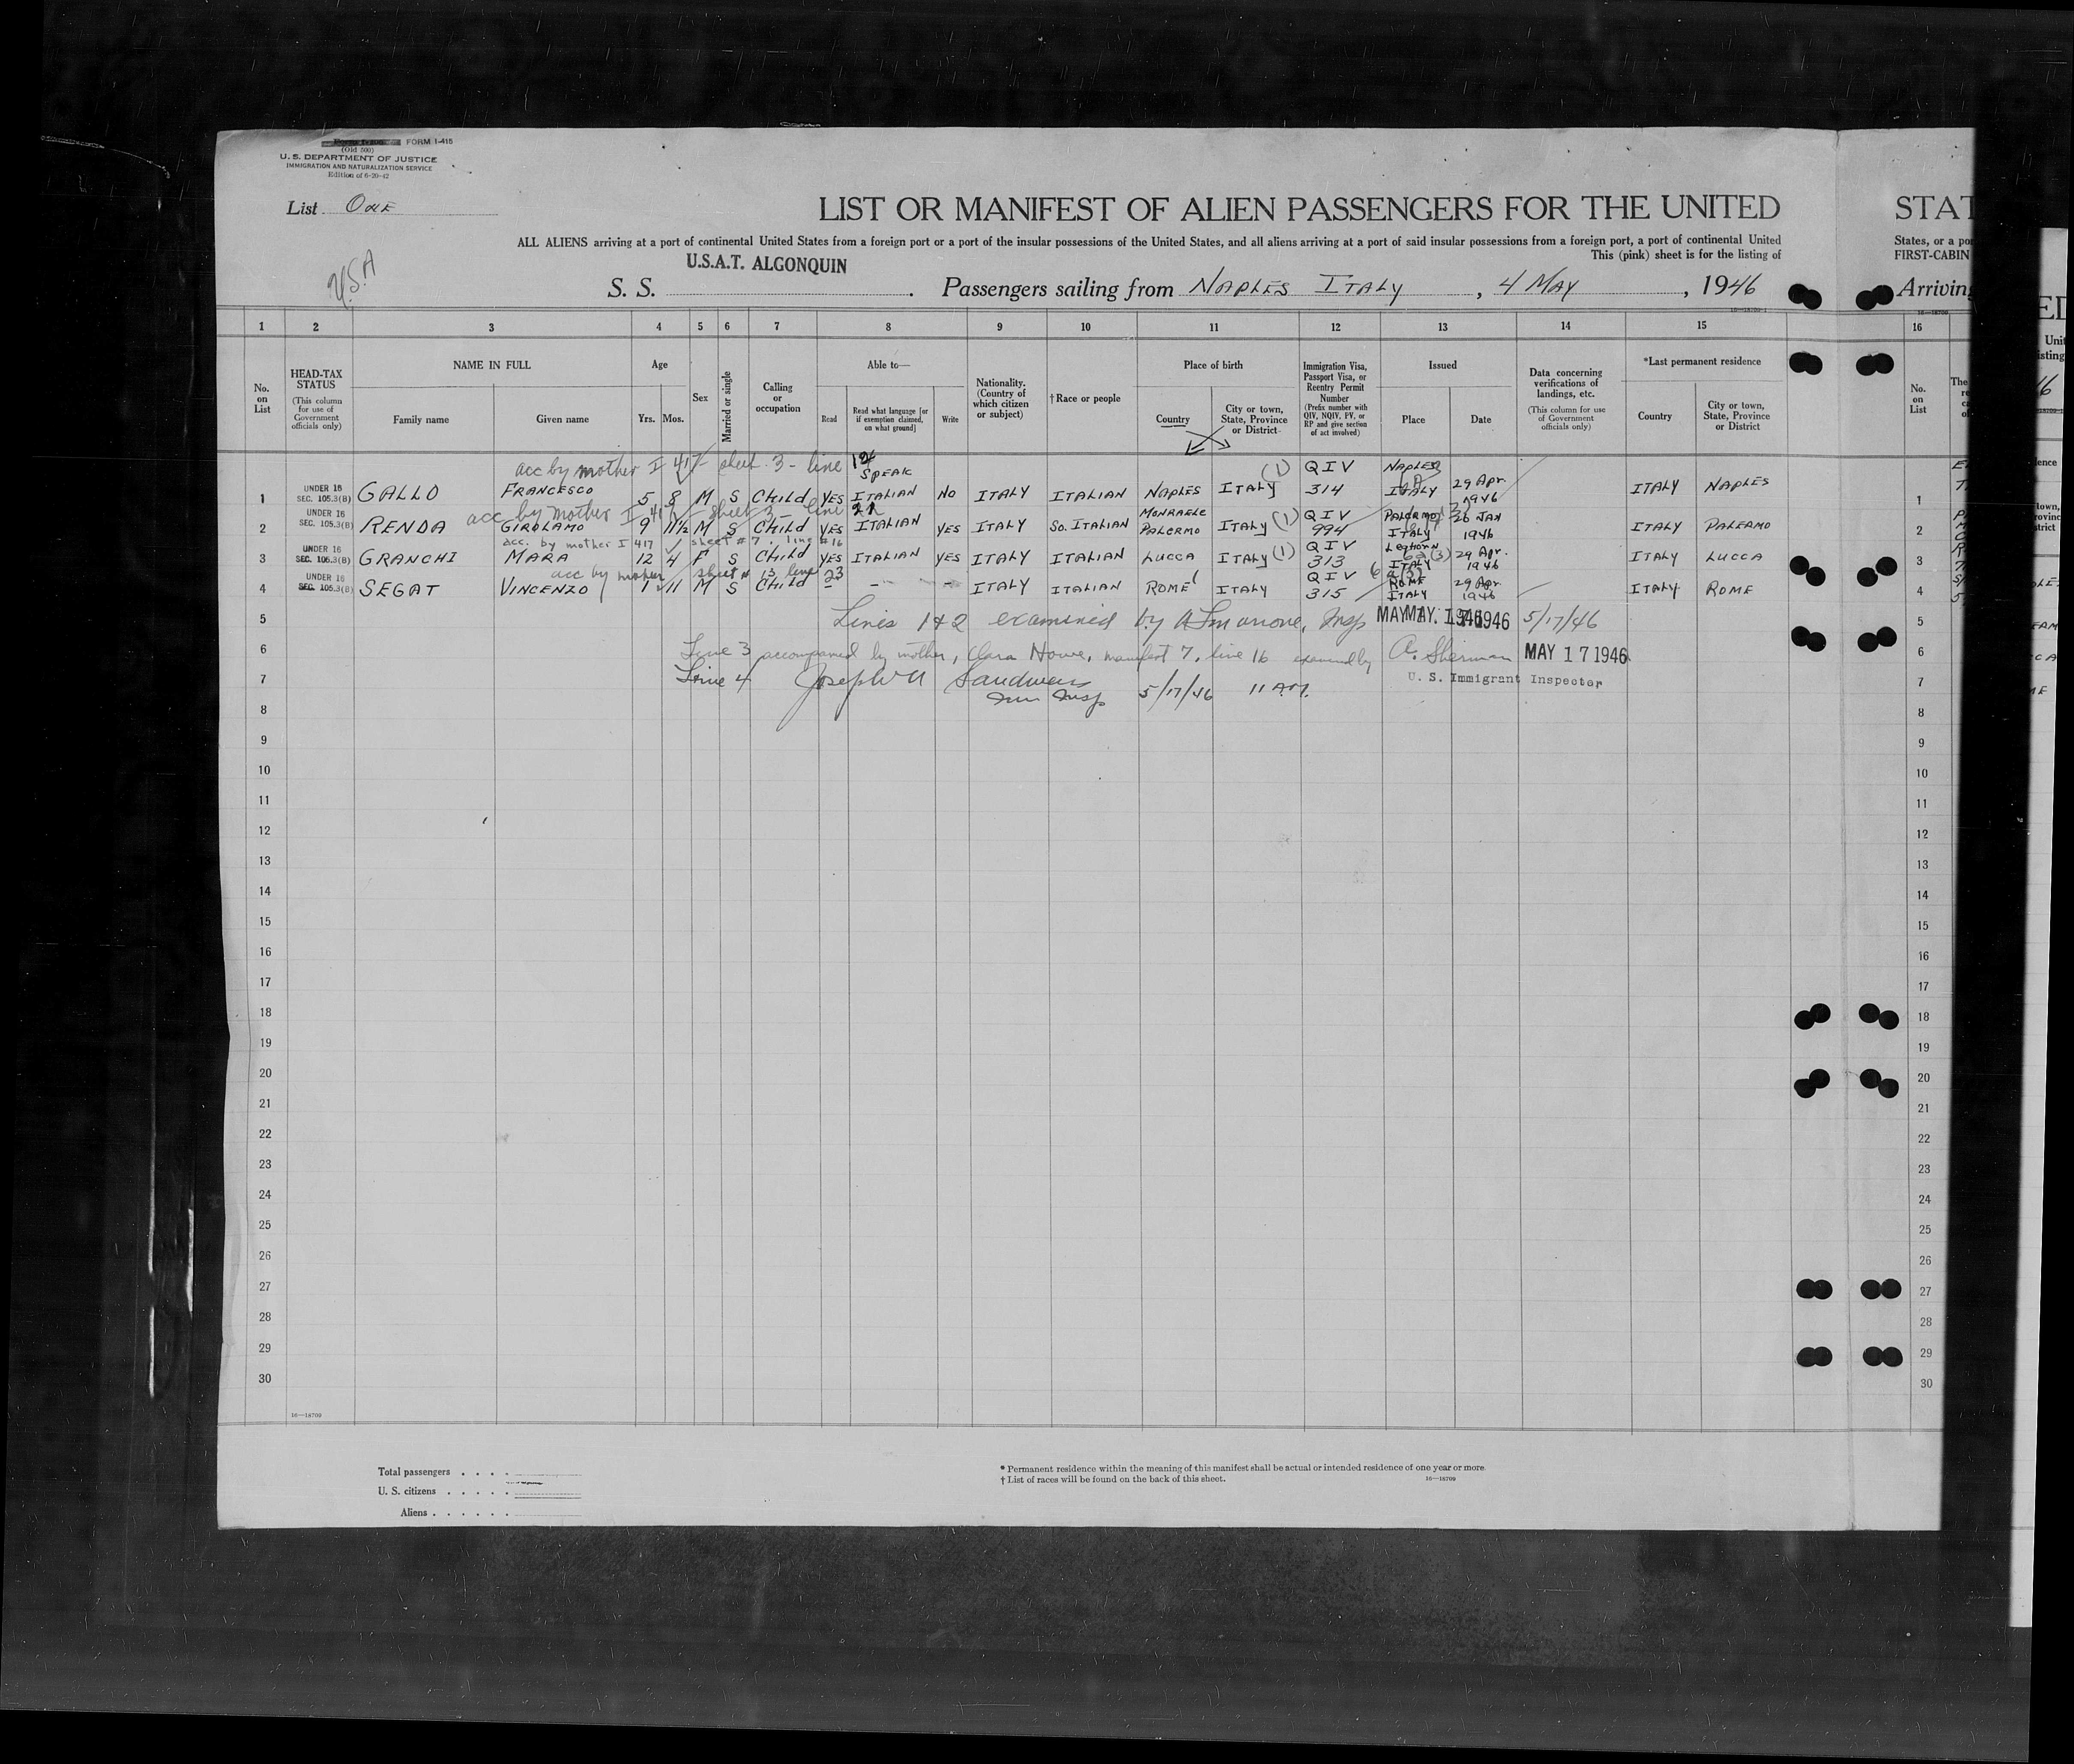 FORM I-415
(Old 500)
U. S. DEPARTMENT OF JUSTICE
IMMIGRATION AND NATURALIZATION SERVICE
Edition of 6-20-42
List One
U.S.A
LIST OR MANIFEST OF ALIEN PASSENGERS FOR THE UNITED
STAT
ALL ALIENS arriving at a port of continental United States from a foreign port or a port of the insular possessions of the United States, and all aliens arriving at a port of said insular possessions from a foreign port, a port of continental United
States, or a po
This (pink) sheet is for the listing of
FIRST-CABIN
U.S.A.T. ALGONQUIN
S. S. Passengers sailing from NAPLES ITALY, 4 MAY, 1946
Arriving
1 2 3 4 5 6 7 8 9 10 11 12 13 14 15 16
No. on List
HEAD-TAX STATUS
(This column for use of Government officials only)
NAME IN FULL
Family name Given name
Age
Yrs. Mos.
Sex
Married or single
Calling or occupation
Able to—
Read
Read what language [or if exemption claimed, on what ground]
Write
Nationality. (Country of which citizen or subject)
†Race or people
Place of birth
Country
City or town, State, Province or District
Immigration Visa, Passport Visa, or Reentry Permit Number
(Prefix number with QIV, NQIV, PV, or RP and give section of act involved)
Issued
Place Date
Data concerning verifications of landings, etc.
(This column for use of Government officials only)
*Last permanent residence
Country
City or town, State, Province or District
No. on List
acc by mother I 417 - sheet 3 - line
SPEAK
1 UNDER 16 SEC. 105.3(B) GALLO FRANCESCO 5 8 M S CHILD YES ITALIAN NO ITALY ITALIAN NAPLES ITALY (1) QIV 314 NAPLES ITALY 29 Apr. 1946 ITALY NAPLES 1
acc by mother I 417 sheet 3 - line
2 UNDER 16 SEC. 105.3(B) RENDA GIROLAMO 9 11½ M S CHILD YES ITALIAN YES ITALY So. ITALIAN MONRAELE PALERMO ITALY (1) QIV 994 PALERMO ITALY 26 JAN 1946 ITALY PALERMO 2
acc. by mother I 417 sheet # 7, line #16
3 UNDER 16 SEC. 105.3(B) GRANCHI MARA 12 4 F S CHILD YES ITALIAN YES ITALY ITALIAN LUCCA ITALY (1) QIV 313 Leghorn ITALY 29 Apr. 1946 ITALY LUCCA 3
acc by mother sheet # 13 line 23
4 UNDER 16 SEC. 105.3(B) SEGAT VINCENZO 1 11 M S CHILD - - - ITALY ITALIAN ROME ITALY QIV 315 ROME ITALY 29 Apr 1946 ITALY ROME 4
5 Lines 1 & 2 examined by Insp 5/17/46 5
6 Line 3 accompanied by mother, Clara Howe, manifest 7, line 16 examined by A. Sherman MAY 17 1946 6
U. S. Immigrant Inspector
7 Line 4 Joseph Imm Insp 5/17/46 11 AM. 7
8 8
9 9
10 10
11 11
12 12
13 13
14 14
15 15
16 16
17 17
18 18
19 19
20 20
21 21
22 22
23 23
24 24
25 25
26 26
27 27
28 28
29 29
30 30
16—18709
Total passengers . . . .
U. S. citizens . . . . .
Aliens . . . . . .
* Permanent residence within the meaning of this manifest shall be actual or intended residence of one year or more.
† List of races will be found on the back of this sheet. 16—18709